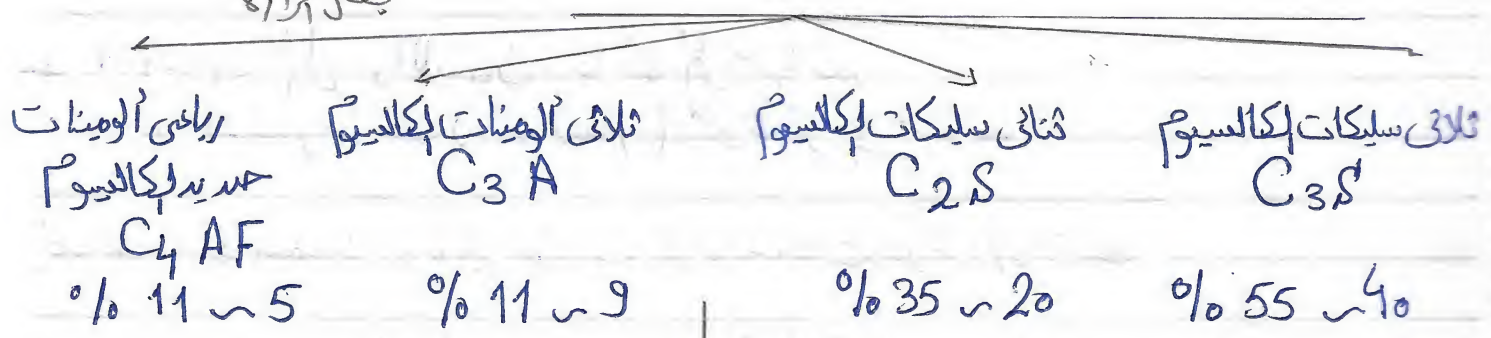 ثلاثى سليكات الكالسيوم
C3S
40 ~ 55 %
ثنائى سليكات الكالسيوم
C2S
20 ~ 35 %
ثلاثى ألومينات الكالسيوم
C3A
9 ~ 11 %
رباعى ألومينات
حديد الكالسيوم
C4AF
5 ~ 11 %